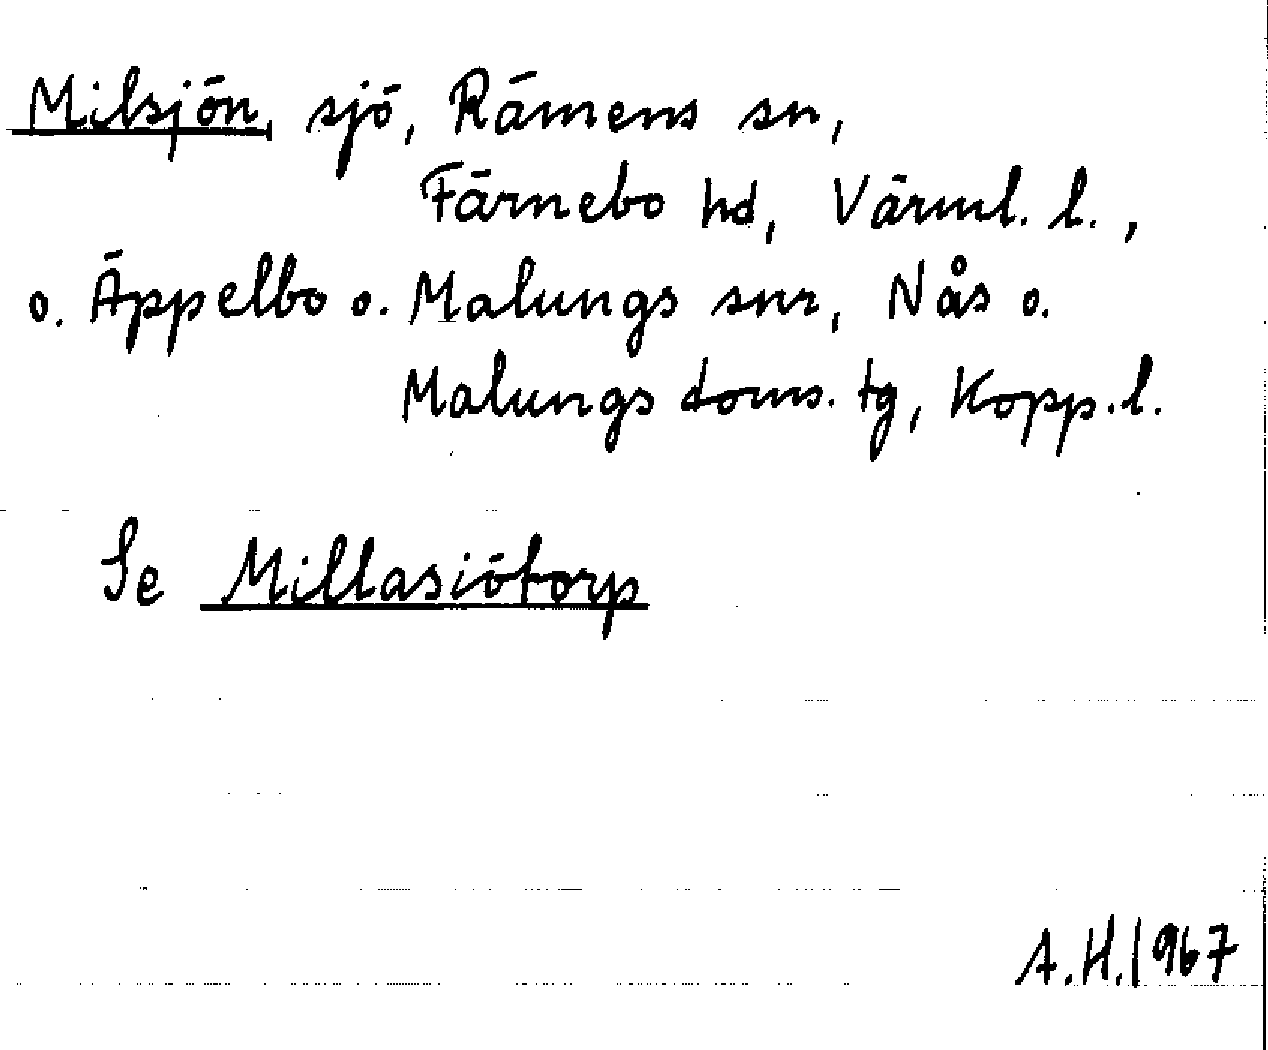 Milsjön, sjö, Rämens sn,
Färnebo hd, Värml. l.,
o. Äppelbo o. Malungs snr, Nås o.
Malungs doms. tg, Kopp. l.
Se Millasiötorp
A.H. 1967